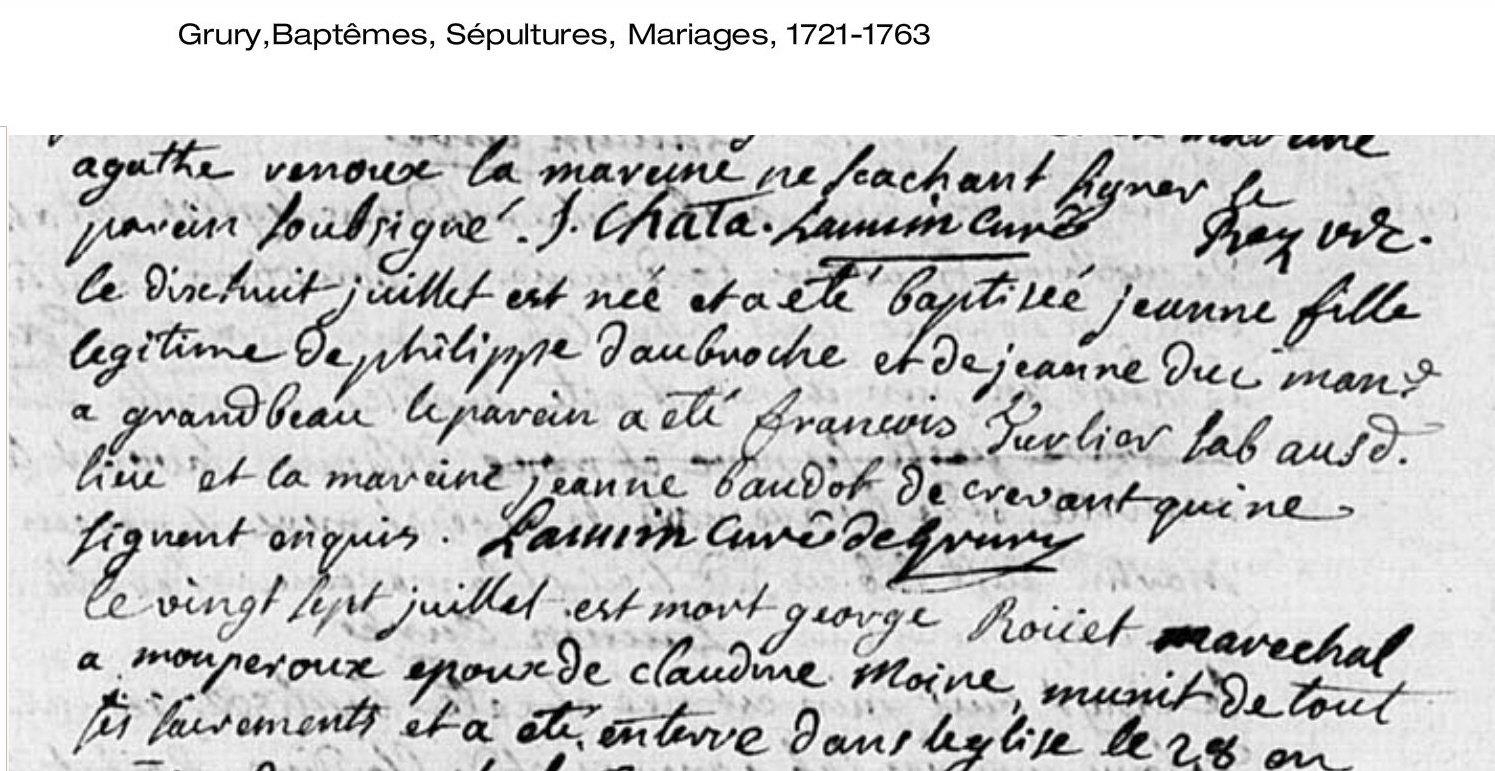 Grury,Baptêmes, Sépultures, Mariages, 1721-1763
maraine
agathe venoux la mareine ne scachant signer le
parein soubsigné. J. Chata. Lamin Curé
le dixehuit juillet est neé et a eté baptiseé jeanne fille
legitime de philippe daubroche et de jeanne man.e
a grandbeau le parein a eté francois Turlier lab ausd.
lieu et la mareine jeanne baudot de crevant qui ne
signent enquis. Lamin Curé de Grury
le vingt sept juillet est mort george Roüet marechal
a mouperoux epoux de claudine Moine, munit de tout
ses sacrements et a eté enterre dans leglise le 28 en